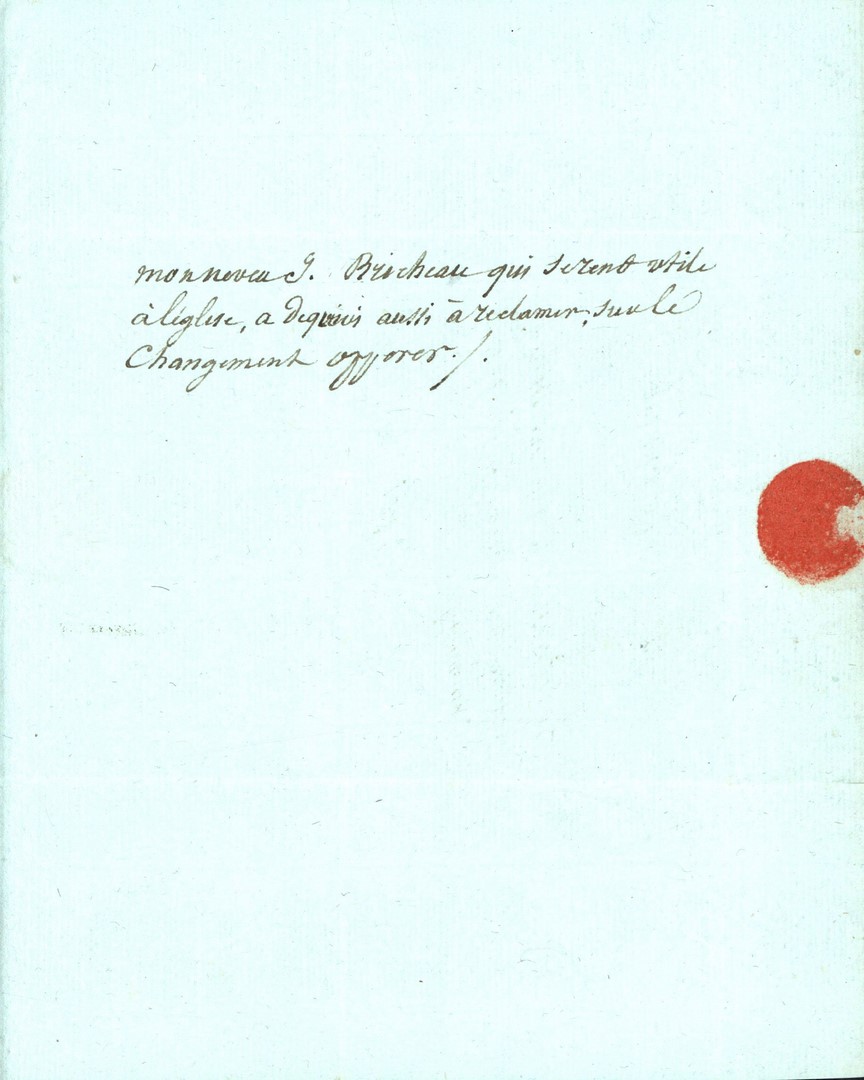 mon neveu J. Bricheau qui se rend utile
à léglise, a dequois aussi à réclamer, sur lé
Changement opporer./.